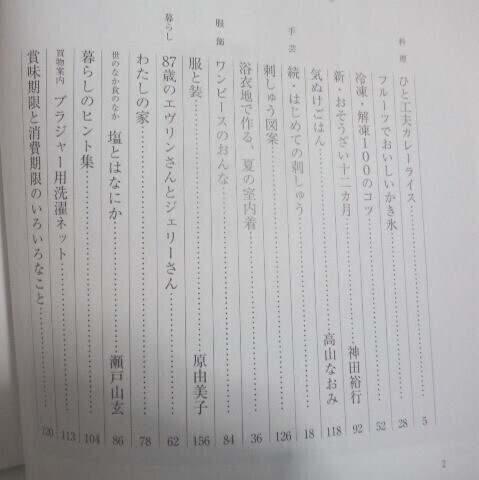 料理
ひと工夫カレーライス 5
フルーツでおいしいかき氷 28
冷凍・解凍100のコツ 52
新・おそうざい十二カ月 神田裕行 92
気ぬけごはん 高山なおみ 118
手芸
続・はじめての刺しゅう 18
刺しゅう図案 126
浴衣地で作る、夏の室内着 36
服飾
ワンピースのおんな 84
服と装 原由美子 156
暮らし
87歳のエヴリンさんとジェリーさん 62
わたしの家 78
世のなか食のなか 塩とはなにか 瀬戸山玄 86
暮らしのヒント集 104
買物案内 ブラジャー用洗濯ネット 113
賞味期限と消費期限のいろいろなこと 120
2